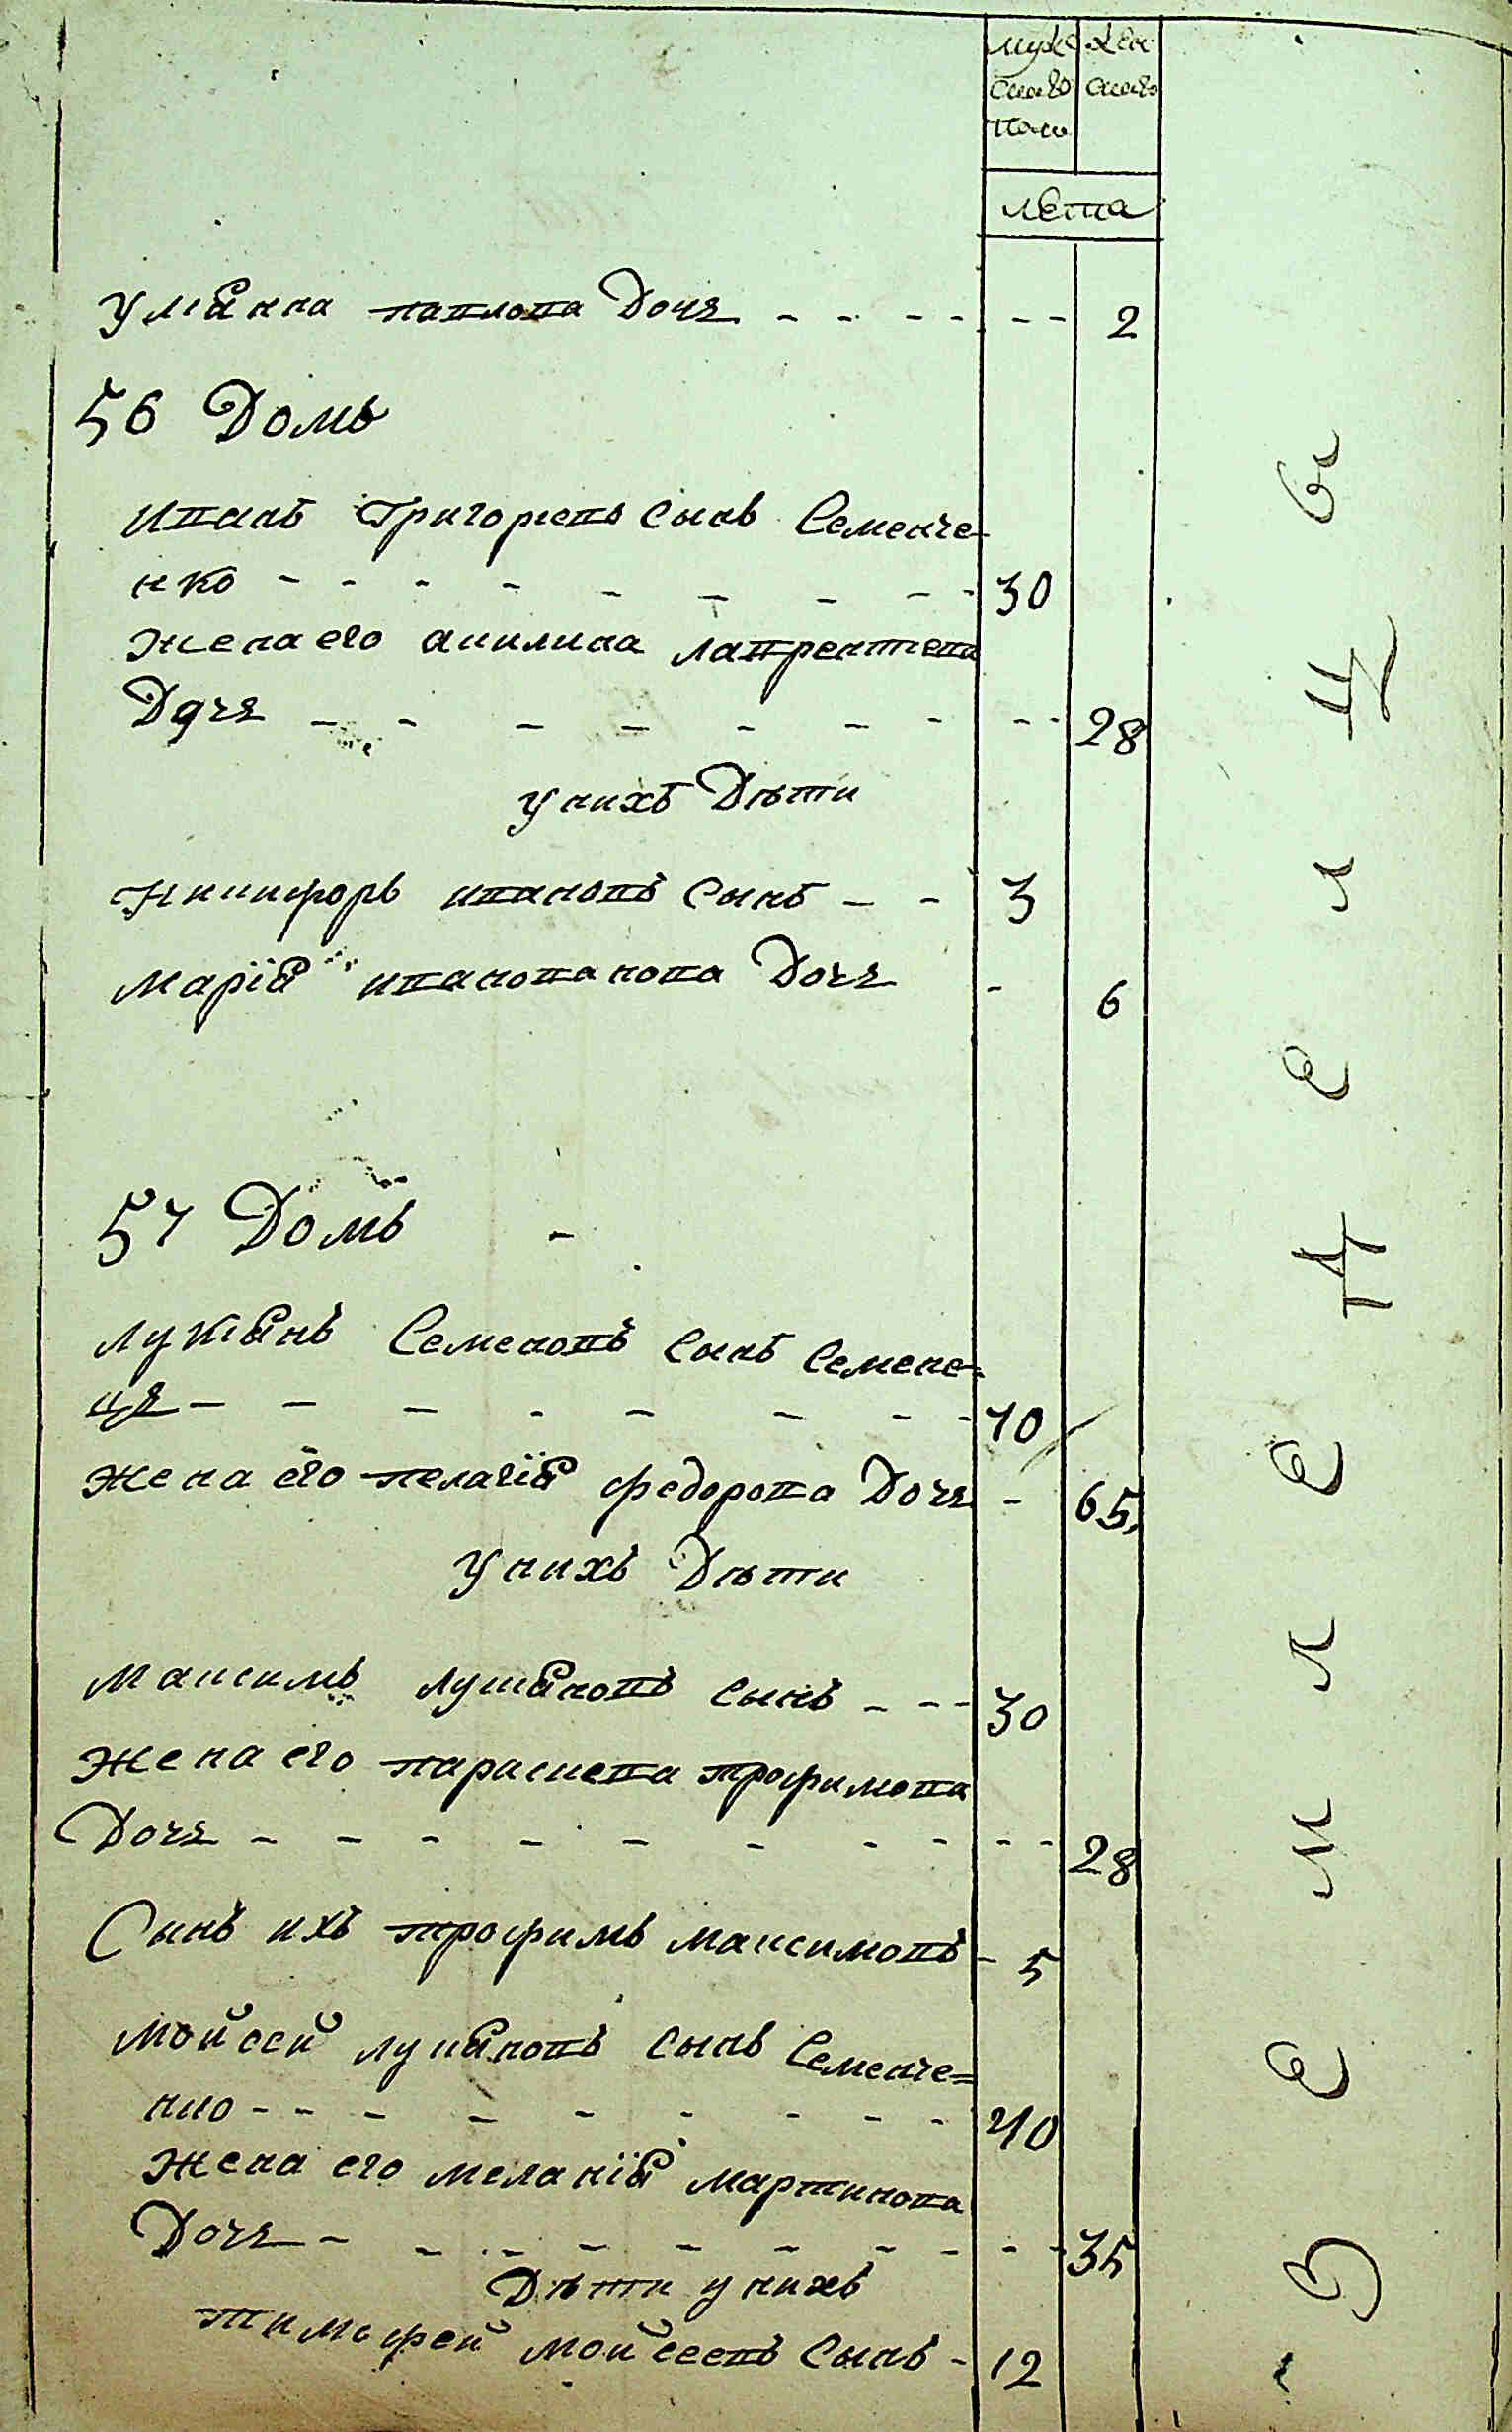 мужс жен
скаго скаго
полу
лета
Улиянна павлова Доч - - - - - - 2
56 Домъ
Иванъ Григориевъ Сынъ Семенче-
нко - - - - - - - - - 30
Жена его Акилина лаврентева
Доч - - - - - - - - - 28
у нихъ Дѣти
Никифоръ ивановъ Сынъ - - 3
Марїя иванованова Доч - 6
57 Домъ -
лукиянъ Семеновъ сынъ Семене-
ця - - - - - - - - 70
Жена его пелагїя федорова Доч - 65
у нихъ Дѣти
Максимъ лукияновъ сынъ - - - 30
Жена его параскева трофимова
Доч - - - - - - - - - - 28
Сынъ ихъ трофимъ максимовъ - 5
Мойсей лукияновъ сынъ Семенче=
нко - - - - - - - - - 40
Жена его меланїя мартинова
Доч - - - - - - - - - - 35
Дѣти у нихъ
тимофей мойсеевъ Сынъ - 12
Земледелцы